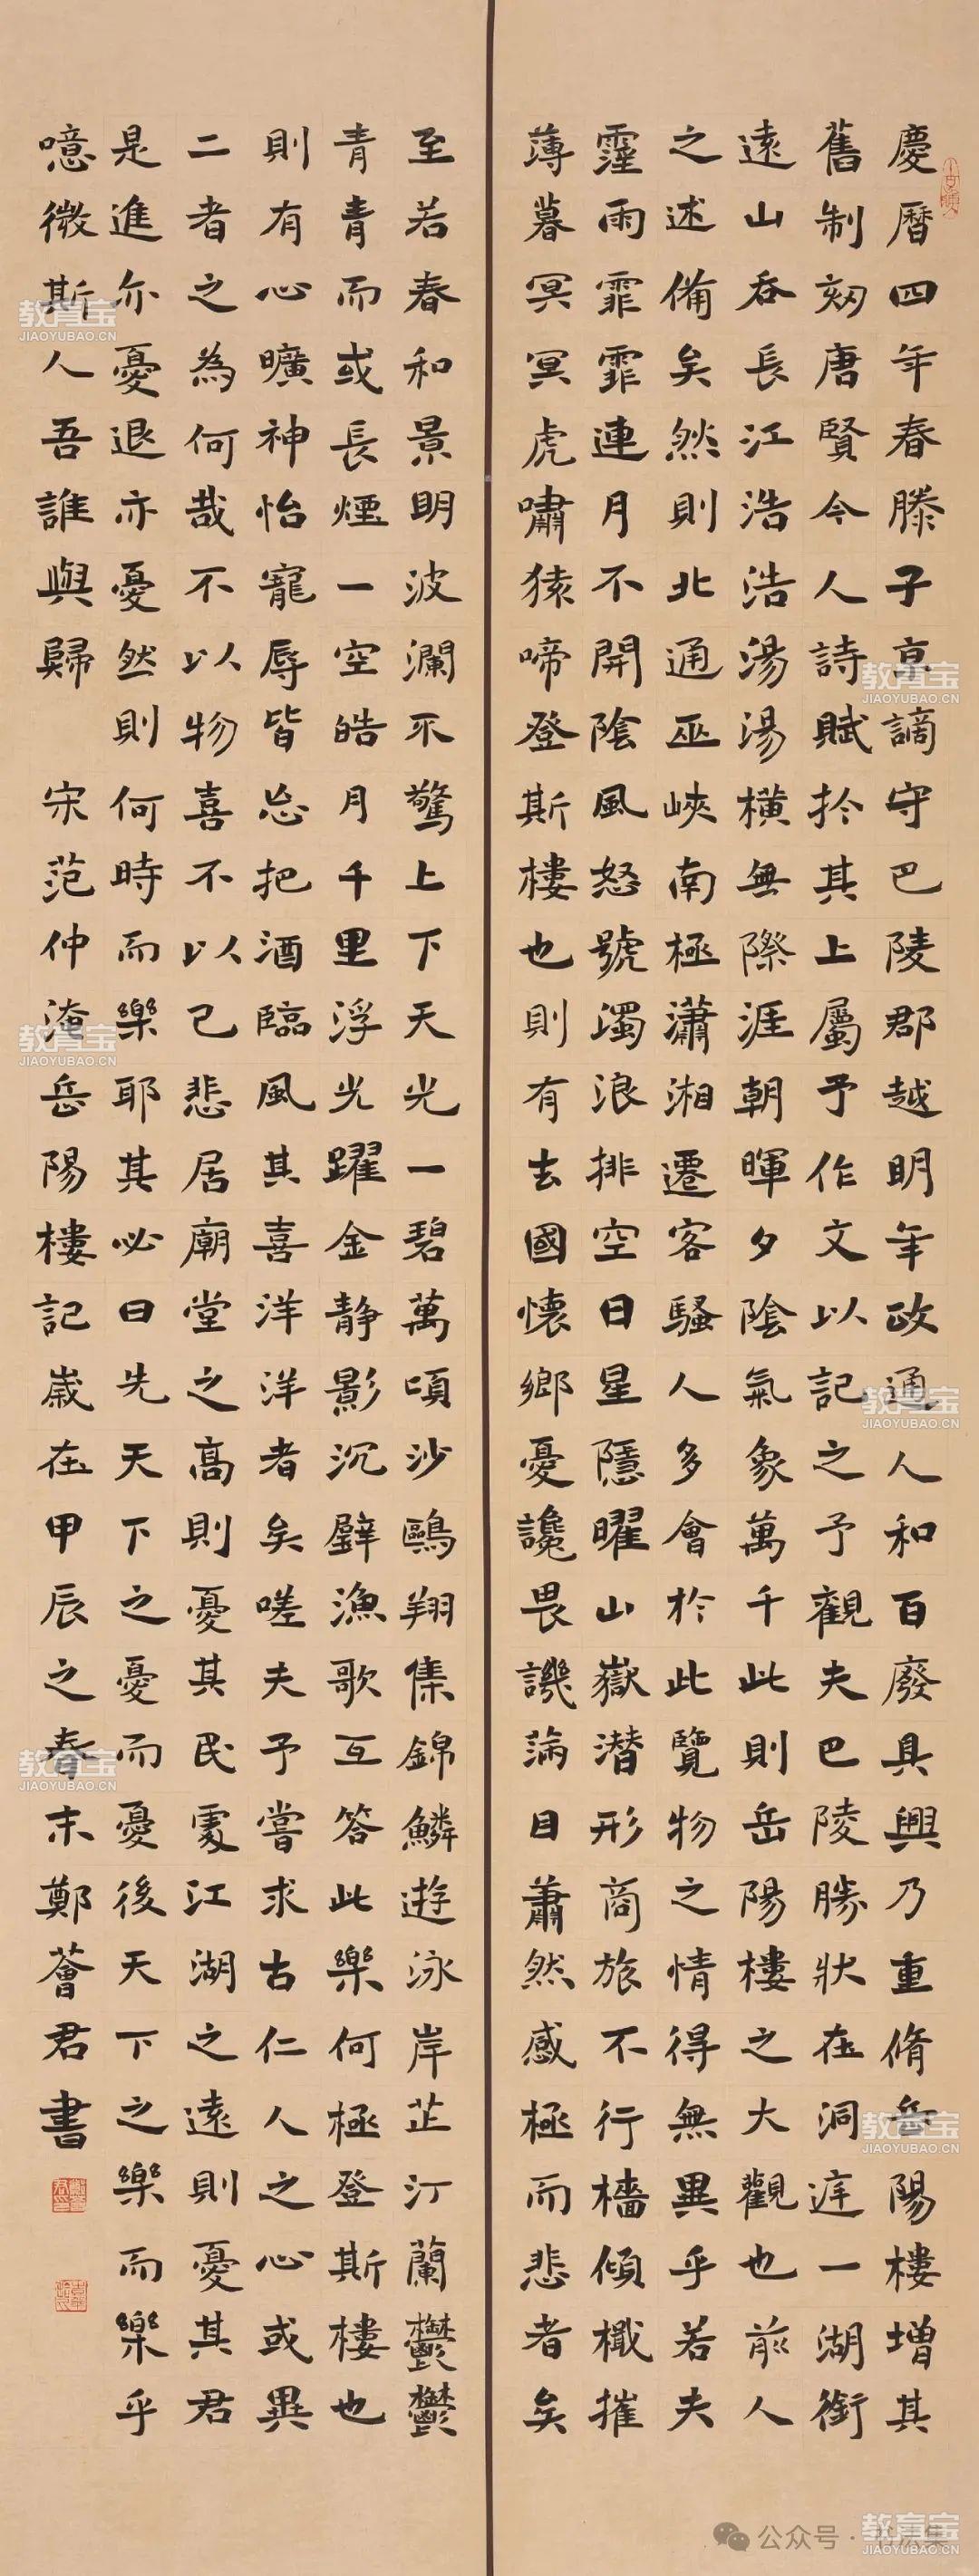 慶曆四年春滕子京謫守巴陵郡越明年政通人和百廢具興乃重脩岳陽樓增其
舊制刻唐賢今人詩賦於其上屬予作文以記之予觀夫巴陵勝狀在洞庭一湖銜
遠山吞長江浩浩湯湯橫無際涯朝暉夕陰氣象萬千此則岳陽樓之大觀也前人
之述備矣然則北通巫峽南極瀟湘遷客騷人多會於此覽物之情得無異乎若夫
霪雨霏霏連月不開陰風怒號濁浪排空日星隱曜山嶽潛形商旅不行檣傾檝摧
薄暮冥冥虎嘯猿啼登斯樓也則有去國懷鄉憂讒畏譏滿目蕭然感極而悲者矣
至若春和景明波瀾不驚上下天光一碧萬頃沙鷗翔集錦鱗遊泳岸芷汀蘭鬱鬱
青青而或長煙一空皓月千里浮光躍金靜影沉璧漁歌互答此樂何極登斯樓也
則有心曠神怡寵辱皆忘把酒臨風其喜洋洋者矣嗟夫予嘗求古仁人之心或異
二者之為何哉不以物喜不以己悲居廟堂之高則憂其民處江湖之遠則憂其君
是進亦憂退亦憂然則何時而樂耶其必曰先天下之憂而憂後天下之樂而樂乎
噫微斯人吾誰與歸 宋范仲淹岳陽樓記歲在甲辰之春末鄭薈君書
教育宝
JIAOYUBAO.CN
教育宝
JIAOYUBAO.CN
教育宝
JIAOYUBAO.CN
教育宝
JIAOYUBAO.CN
教育宝
JIAOYUBAO.CN
教育宝
JIAOYUBAO.CN
教育宝
JIAOYUBAO.CN
公众号 ·